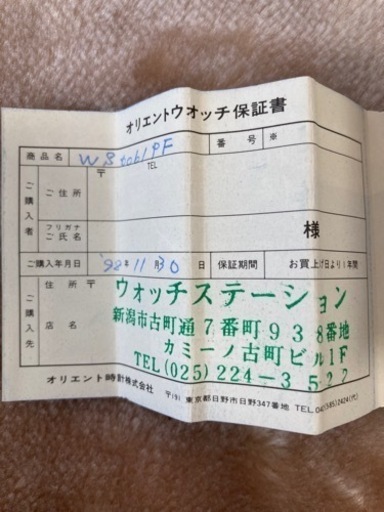 オリエントウオッチ保証書
商品名 番号 ※
ご購入者
〒 TEL
ご住所
フリガナ
ご氏名 様
ご購入年月日 '98年11月30日 保証期間 お買上げ日より1年間
ご購入先
住所 〒
店名
ウォッチステーション
新潟市古町通7番町938番地
カミーノ古町ビル1F
TEL(025)224-3522
オリエント時計株式会社 〒191 東京都日野市日野347番地